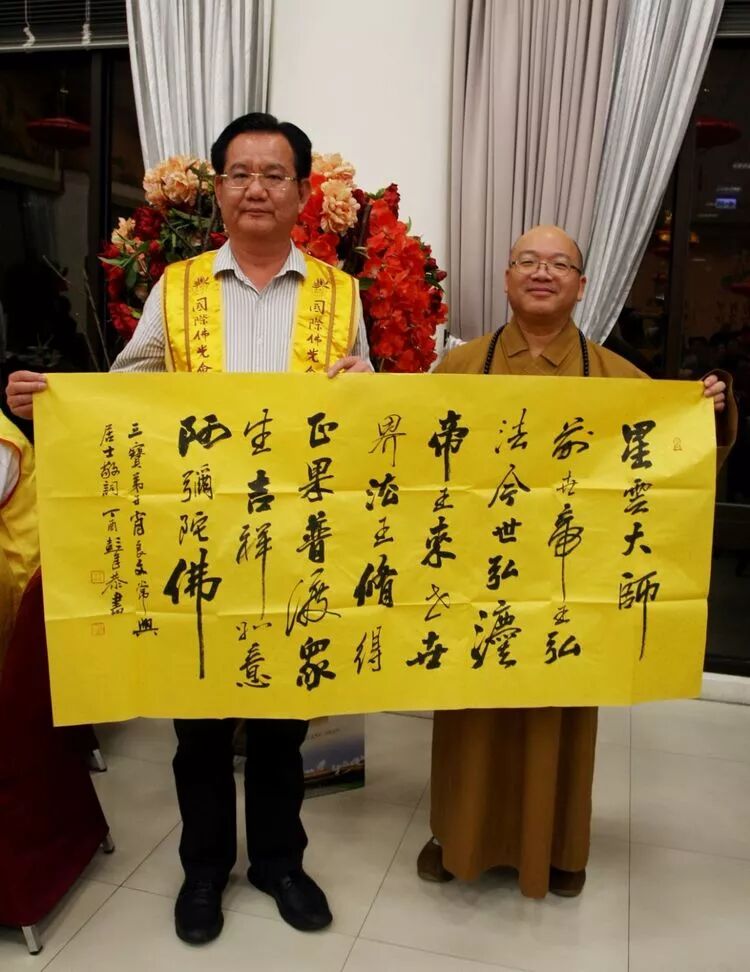 星雲大師
前世帝王弘
法今世弘灋
帝王來世世
界法王脩得
正果普渡眾
生吉祥如意
阿彌陀佛
三寶弟子肖良文常興
居士敬詞 丁酉 彭恭書
國際佛光會
國際佛光會